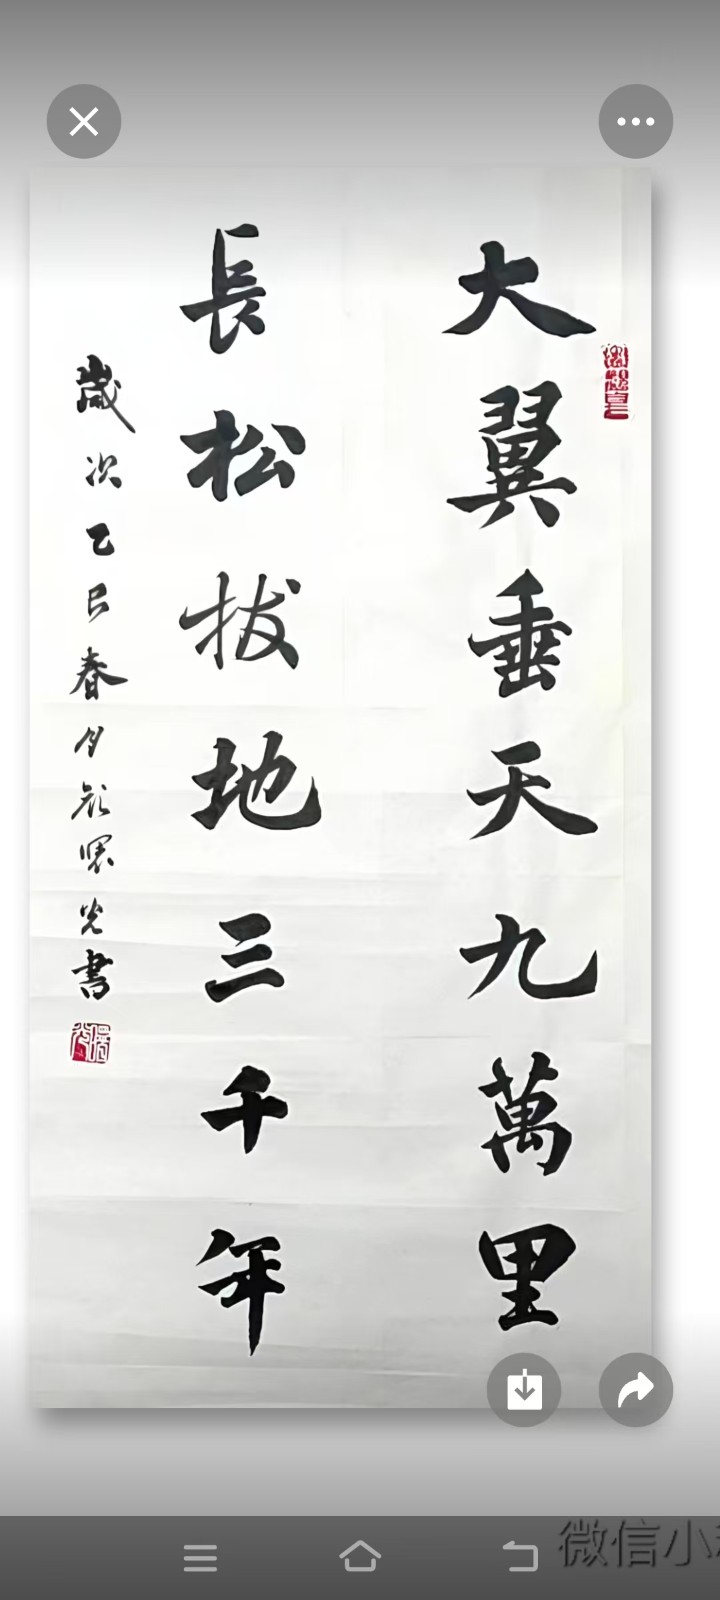 大翼垂天九萬里
長松拔地三千年
歲次乙巳春月
光書
微信小